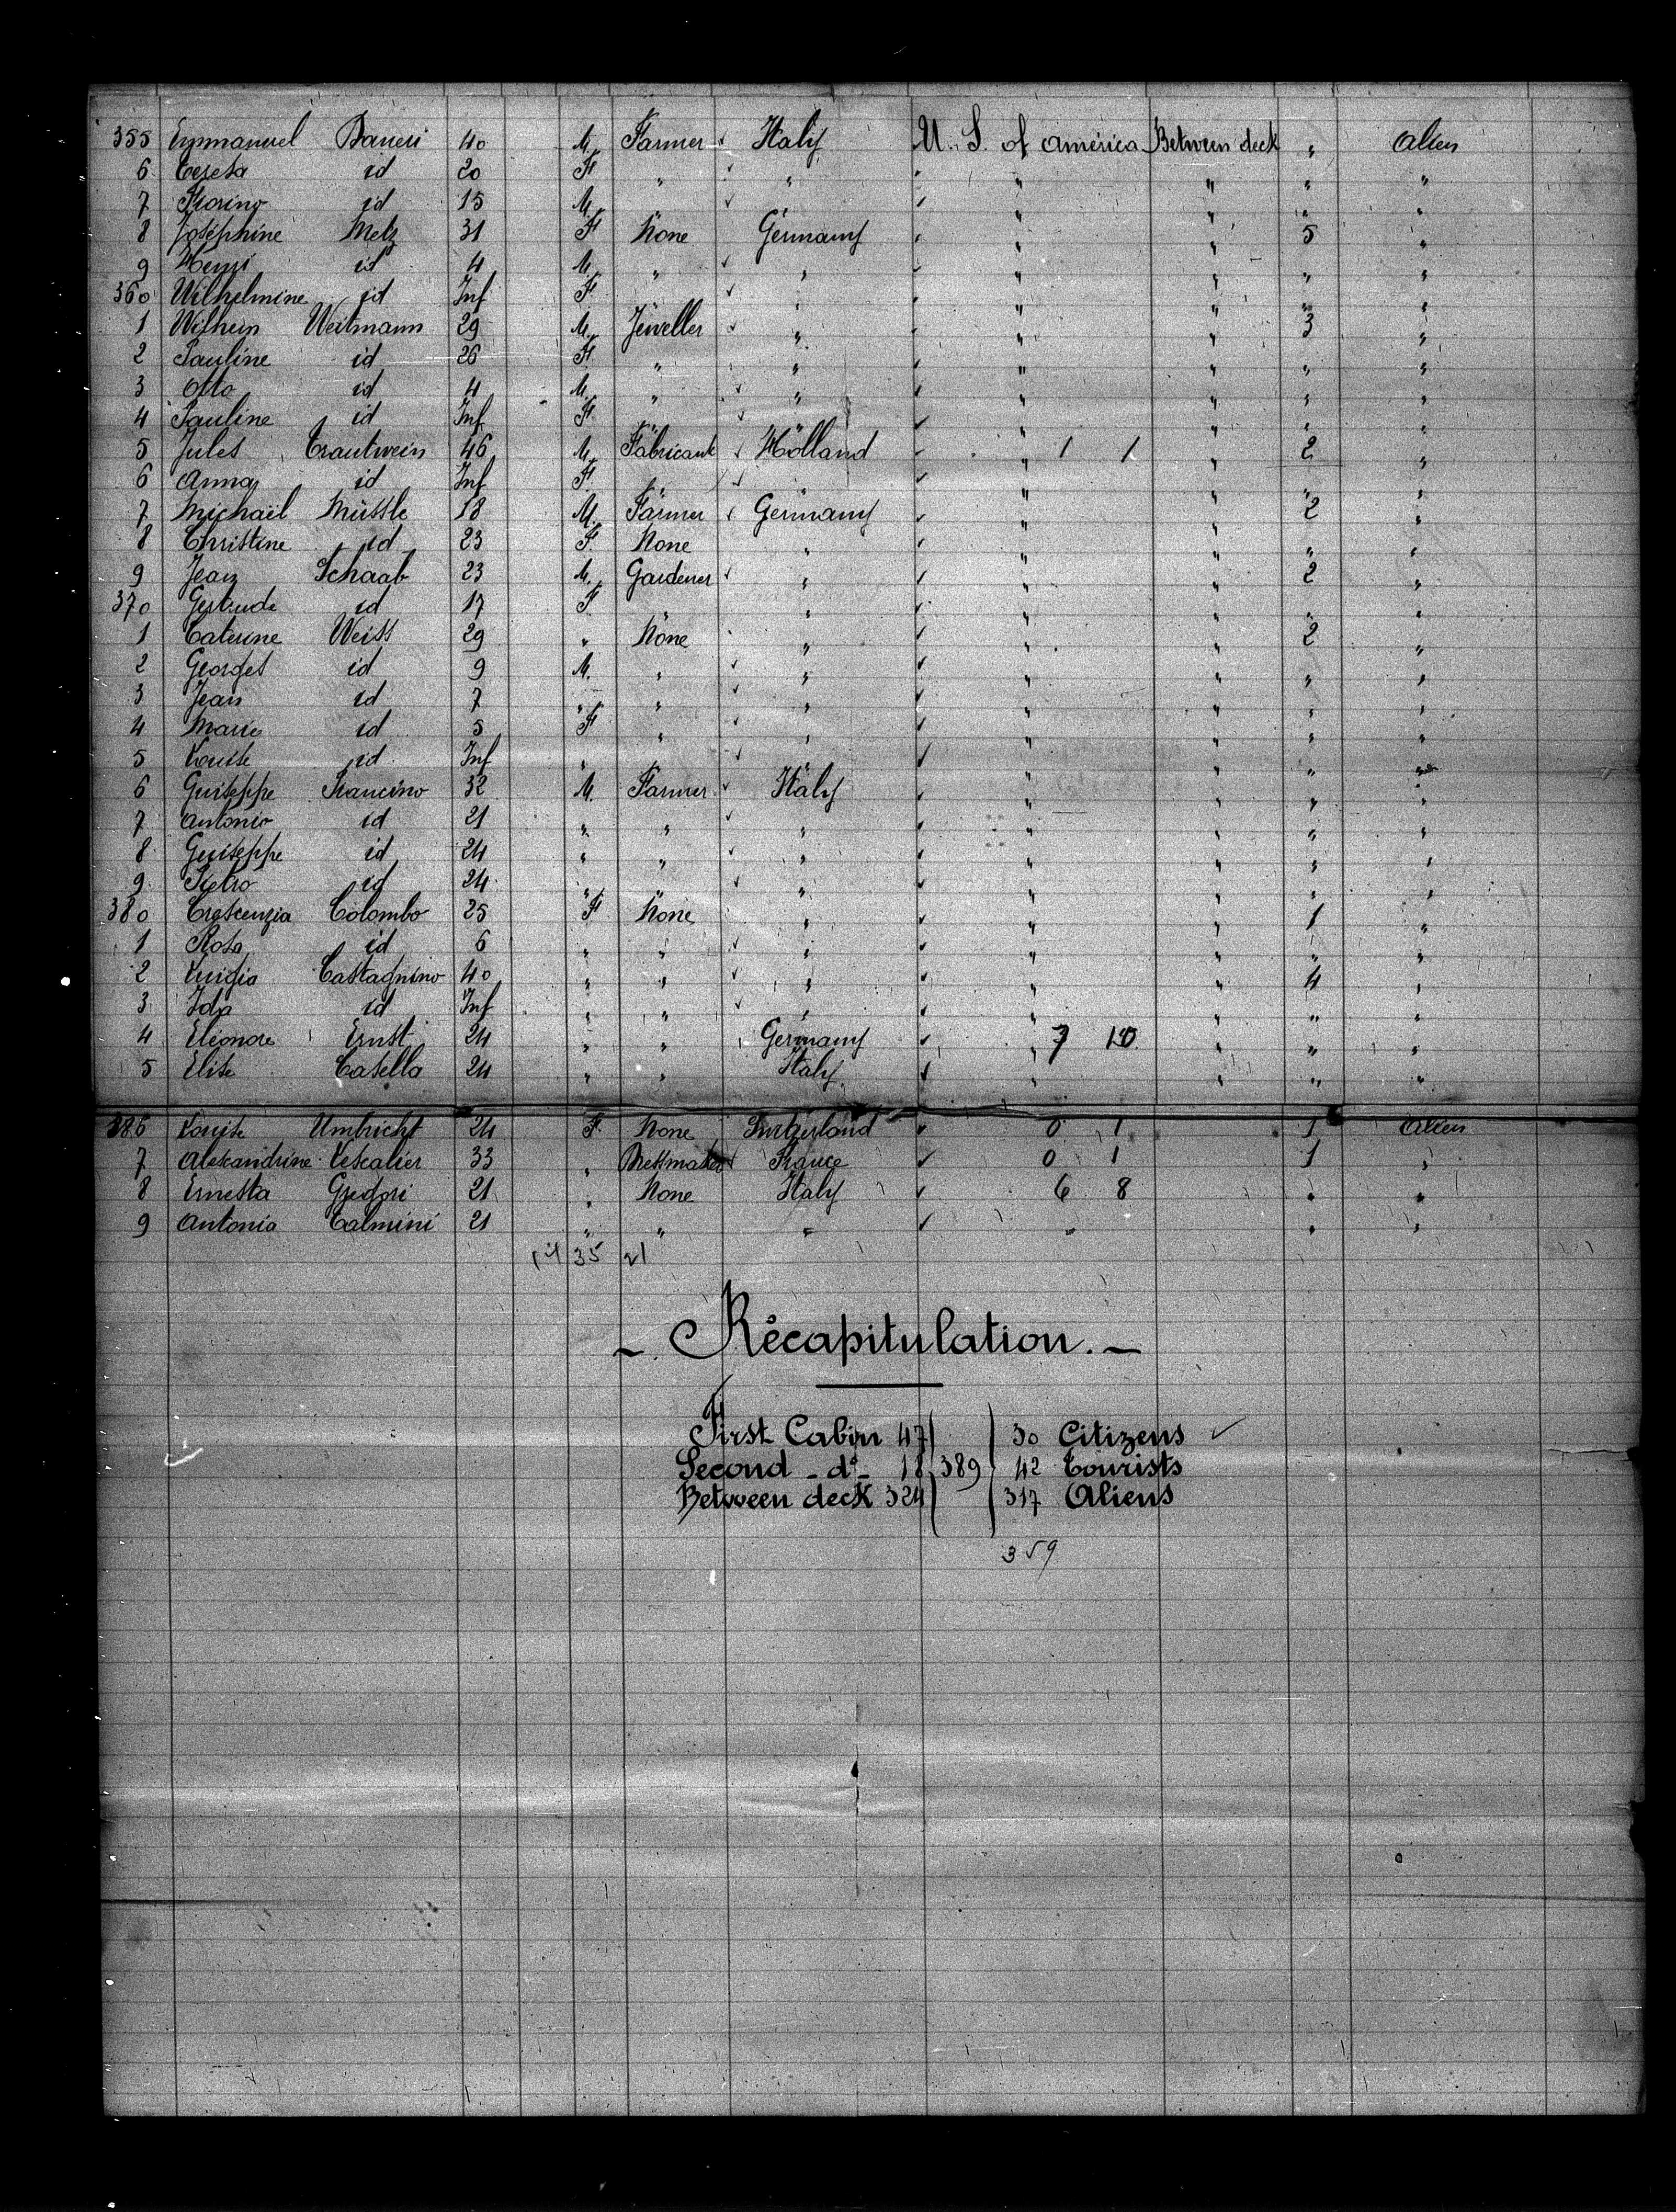 355 Emmanuel Baneri 40 M. Farmer Italy U. S. of América Between deck " Alien
6 Teresa id 20 F " " " " " "
7 Fiorino id 15 M. " " " "
8 Joséphine Metz 31 F None Germany " " 5 "
9 Henri id 4 M. " " " " " "
360 Wilhelmine id Inf F. " " " "
1 Wilhem Weitmann 29 M. Jeweller " " " 3 "
2 Pauline id 26 F. " " " " " "
3 Otto id 4 M. " " " " " "
4 Pauline id Inf F. " " " "
5 Jules Trautwein 46 M. Fabricant Holland " 1 1 " 2 "
6 Anna id Inf F. " " " " " "
7 Michaël Mussle 18 M. Farmer Germany " " 2 "
8 Christine id 23 F. None " " " " "
9 Jean Schaab 23 M. Gardener " " " 2 "
370 Gertrude id 17 F. " " " " "
1 Caterine Weiss 29 " None " " " 2 "
2 Georges id 9 M. " " " " " "
3 Jean id 7 " " " " " " "
4 Marie id 5 F " " " " " "
5 Louise id Inf " " " " " "
6 Guiseppe Francino 32 M. Farmer Italy " " " "
7 Antonio id 21 " " " " " " "
8 Guiseppe id 24 " " " " " " "
9 Pietro id 24 " " " " " " "
380 Crescenzia Colombo 25 F None " " " 1 "
1 Rosa id 6 " " " " " " "
2 Luigia Castagnino 40 " " " " " 4 "
3 Ida id Inf " " " " " " "
4 Eléonore Ernst 24 " " Germany " 7 10 " " "
5 Elise Casella 24 " " Italy " " "
386 Louise Umbricht 24 F. None Switzerland 0 1 1 Alien
7 Alexandrine Lescalier 33 " Dressmaker France 0 1 1 "
8 Ernesta Gregori 21 " None Italy 6 8 " "
9 Antonia Talmini 21 " " " " " "
35 21
Récapitulation.
First Cabin 47 30 Citizens
Second - do - 18 389 42 Tourists
Between deck 324 317 Aliens
359